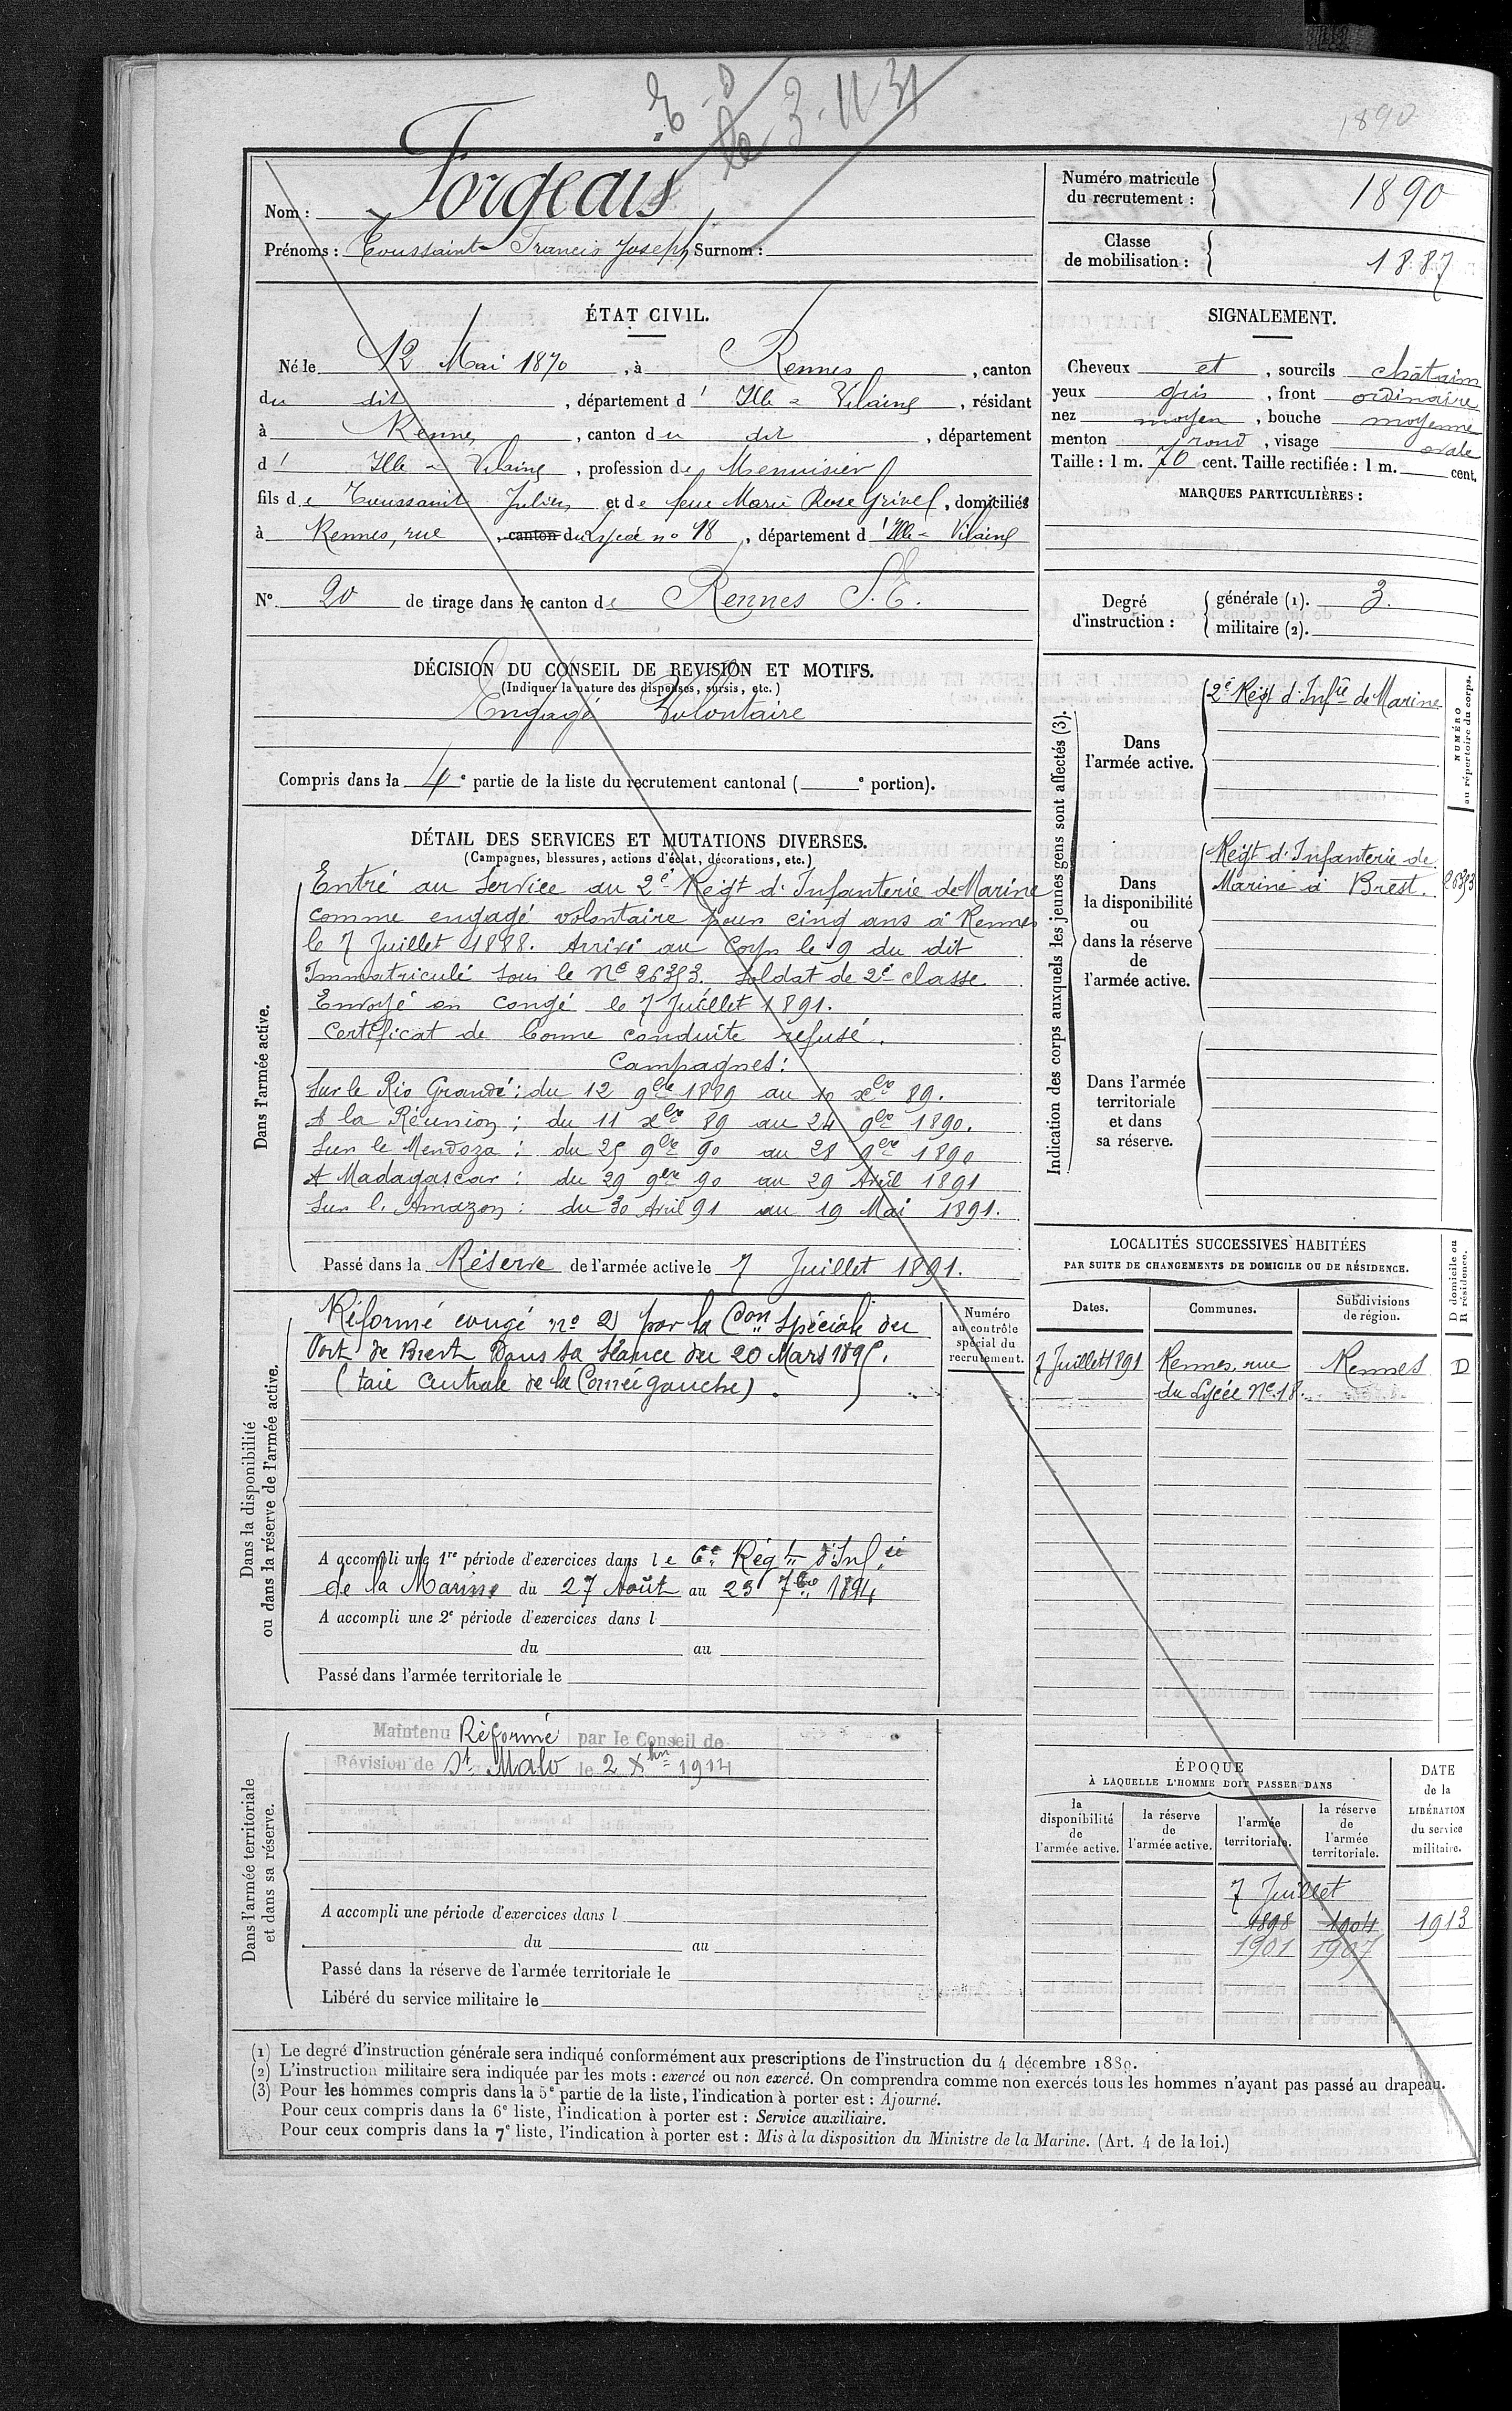 1890
Nom : Forgeais
Prénoms : Toussaint Francis Joseph Surnom :
Numéro matricule du recrutement : 1890
Classe de mobilisation : 1887
ÉTAT CIVIL.
Né le 12 Mai 1870, à Rennes, canton
du dit, département d' Ille-&-Vilaine, résidant
à Rennes, canton du dit, département
d' Ille-&-Vilaine, profession de Menuisier
fils de Toussaint Julien et de feue Marie Rose Grivel, domiciliés
à Rennes, rue, canton du Lycée no 18, département d'Ille-&-Vilaine
N° 20 de tirage dans le canton de Rennes S.E.
DÉCISION DU CONSEIL DE REVISION ET MOTIFS.
(Indiquer la nature des dispenses, sursis, etc.)
Engagé Volontaire
Compris dans la 4e partie de la liste du recrutement cantonal ( e portion).
SIGNALEMENT.
Cheveux et, sourcils châtain
yeux gris, front ordinaire
nez moyen, bouche moyenne
menton rond, visage ovale
Taille : 1 m. 70 cent. Taille rectifiée : 1 m. cent.
MARQUES PARTICULIÈRES :
Degré d'instruction :
générale (1). 3.
militaire (2).
DÉTAIL DES SERVICES ET MUTATIONS DIVERSES.
(Campagnes, blessures, actions d'éclat, décorations, etc.)
Dans l'armée active.
Entré au Service au 2e Régt d'Infanterie de Marine
comme engagé volontaire pour cinq ans à Rennes
le 7 Juillet 1888. Arrivé au Corps le 9 du dit
Immatriculé sous le No 26353. Soldat de 2e classe
Envoyé en Congé le 7 Juillet 1891.
Certificat de bonne conduite refusé.
Campagnes :
Sur le Rio Grande : du 12 9bre 1889 au 10 xbre 89.
A la Réunion : du 11 xbre 89 au 24 9bre 1890.
Sur le Mendoza : du 25 9bre 90 au 28 9bre 1890
A Madagascar : du 29 9bre 90 au 29 Avril 1891
Sur l'Amazon : du 30 Avril 91 au 19 Mai 1891.
Passé dans la Réserve de l'armée active le 7 Juillet 1891.
Indication des corps auxquels les jeunes gens sont affectés (3).
NUMÉRO au répertoire du corps.
Dans l'armée active.
2e Régt d'Infie de Marine
Dans la disponibilité ou dans la réserve de l'armée active.
Régt d'Infanterie de
Marine à Brest. 26353
Dans l'armée territoriale et dans sa réserve.
LOCALITÉS SUCCESSIVES HABITÉES
PAR SUITE DE CHANGEMENTS DE DOMICILE OU DE RÉSIDENCE.
D domicile ou R résidence.
Dates. Communes. Subdivisions de région.
7 Juillet 1891 Rennes, rue Rennes D
du Lycée No 18.
Dans la disponibilité ou dans la réserve de l'armée active.
Numéro au contrôle spécial du recrutement.
Réformé congé no 2 par la Con Spéciale du
Port de Brest Dans sa séance du 20 Mars 1895.
(taie Centrale de la Cornée gauche).
A accompli une 1re période d'exercices dans le 6e Régt d'Infie
de la Marine du 27 Août au 23 7bre 1894
A accompli une 2e période d'exercices dans l
du au
Passé dans l'armée territoriale le
Dans l'armée territoriale et dans sa réserve.
Maintenu Réformé par le Conseil de
Révision de St Malo le 2 Xbre 1914
A accompli une période d'exercices dans l
du au
Passé dans la réserve de l'armée territoriale le
Libéré du service militaire le
ÉPOQUE
À LAQUELLE L'HOMME DOIT PASSER DANS
la disponibilité de l'armée active.
la réserve de l'armée active.
l'armée territoriale.
la réserve de l'armée territoriale.
DATE de la LIBÉRATION du service militaire.
7 Juillet
1898 1904 1913
1901 1907
(1) Le degré d'instruction générale sera indiqué conformément aux prescriptions de l'instruction du 4 décembre 1889.
(2) L'instruction militaire sera indiquée par les mots : exercé ou non exercé. On comprendra comme non exercés tous les hommes n'ayant pas passé au drapeau.
(3) Pour les hommes compris dans la 5e partie de la liste, l'indication à porter est : Ajourné.
Pour ceux compris dans la 6e liste, l'indication à porter est : Service auxiliaire.
Pour ceux compris dans la 7e liste, l'indication à porter est : Mis à la disposition du Ministre de la Marine. (Art. 4 de la loi.)